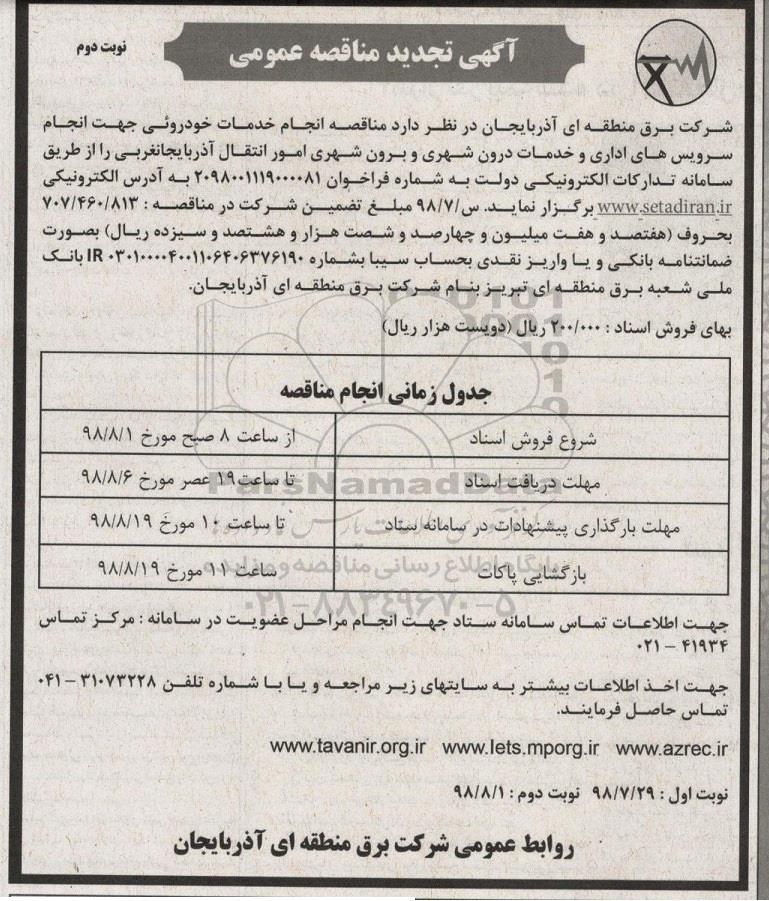 آگهی تجدید مناقصه عمومی
نوبت دوم
شرکت برق منطقه ای آذربایجان در نظر دارد مناقصه انجام خدمات خودروئی جهت انجام
سرویس های اداری و خدمات درون شهری و برون شهری امور انتقال آذربایجانغربی را از طریق
سامانه تدارکات الکترونیکی دولت به شماره فراخوان ۲۰۹۸۰۰۱۱۱۹۰۰۰۰۸۱ به آدرس الکترونیکی
www.setadiran.ir برگزار نماید. س/۹۸/۷ مبلغ تضمین شرکت در مناقصه : ۷۰۷/۴۶۰/۸۱۳
بحروف (هفتصد و هفت میلیون و چهارصد و شصت هزار و هشتصد و سیزده ریال) بصورت
ضمانتنامه بانکی و یا واریز نقدی بحساب سیبا بشماره IR ۰۳۰۱۰۰۰۰۴۰۰۱۱۰۶۴۰۶۳۷۶۱۹۰ بانک
ملی شعبه برق منطقه ای تبریز بنام شرکت برق منطقه ای آذربایجان.
بهای فروش اسناد : ۲۰۰/۰۰۰ ریال (دویست هزار ریال)
جدول زمانی انجام مناقصه
شروع فروش اسناد از ساعت ۸ صبح مورخ ۹۸/۸/۱
مهلت دریافت اسناد تا ساعت۱۹ عصر مورخ ۹۸/۸/۶
مهلت بارگذاری پیشنهادات در سامانه ستاد تا ساعت ۱۰ مورخ ۹۸/۸/۱۹
بازگشایی پاکات ساعت ۱۱ مورخ ۹۸/۸/۱۹
ParsNamadData
پایگاه اطلاع رسانی مناقصه و مزایده
۰۲۱-۸۸۳۴۹۶۷۰-۵
جهت اطلاعات تماس سامانه ستاد جهت انجام مراحل عضویت در سامانه : مرکز تماس
۴۱۹۳۴ – ۰۲۱
جهت اخذ اطلاعات بیشتر به سایتهای زیر مراجعه و یا با شماره تلفن ۳۱۰۷۳۲۲۸ – ۰۴۱
تماس حاصل فرمایند.
www.tavanir.org.ir www.Iets.mporg.ir www.azrec.ir
نوبت اول : ۹۸/۷/۲۹ نوبت دوم : ۹۸/۸/۱
روابط عمومی شرکت برق منطقه ای آذربایجان